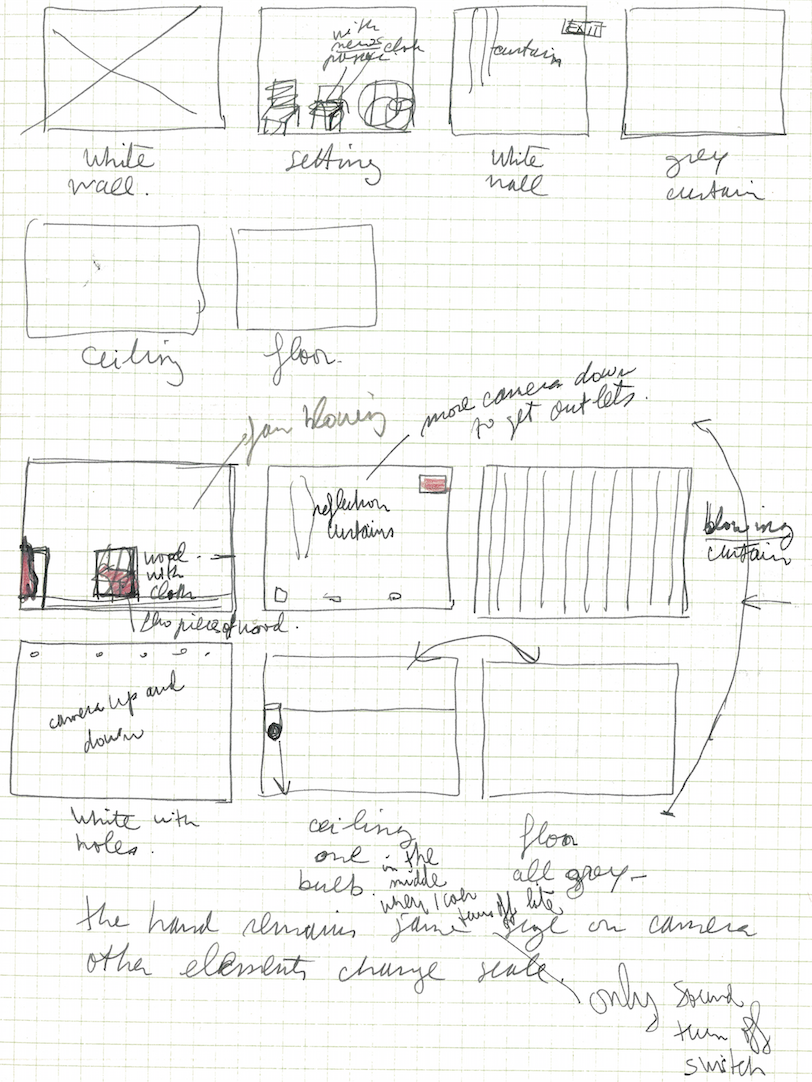 with
news
paper
cloth
EXIT
curtain
White
wall.
setting
White
wall
grey
curtain
ceiling
floor.
fan blowing
more camera down
to get outlets.
reflection
curtains
wood
with
cloth
two pieces of wood.
blowing
curtain
camera up and
down
White with
holes.
ceiling
one in the
middle
bulb.
when I can
turn off lite
floor
all grey -
the hand remains same size on camera
other elements change scale.
only sound
turn off
switch